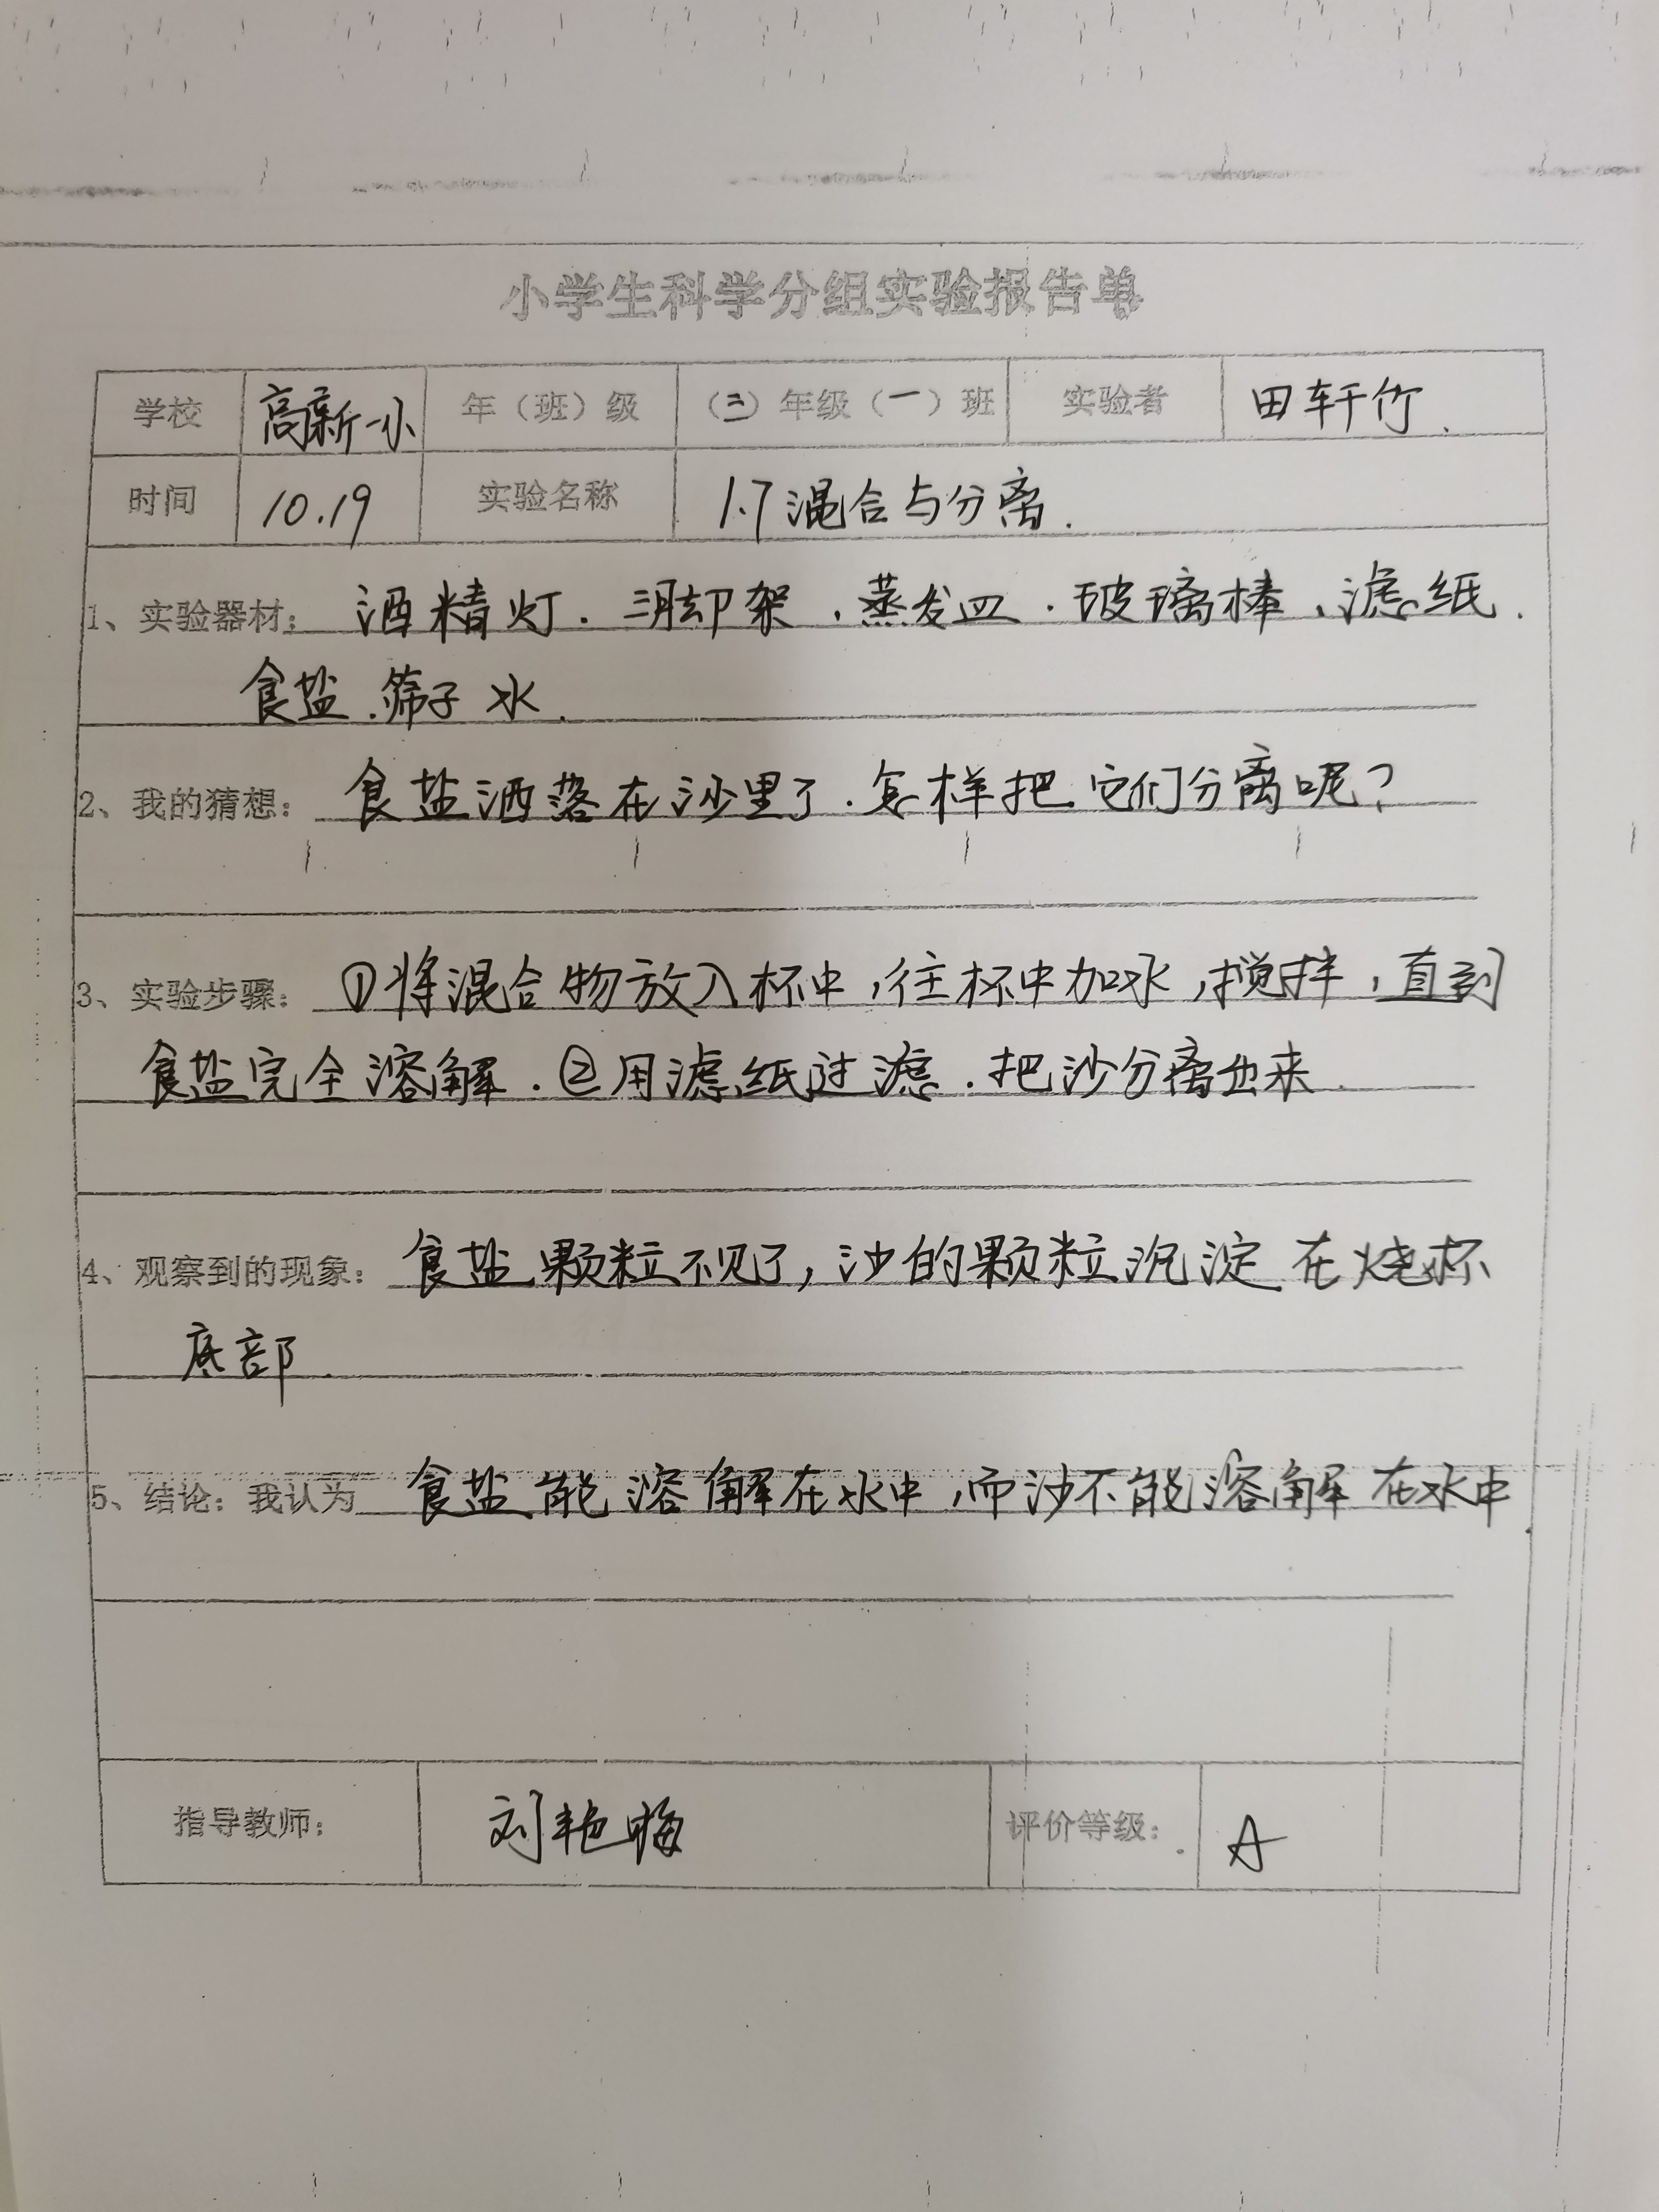 小学生科学分组实验报告单
学校 高新一小 年（班）级 （三）年级（一）班 实验者 田轩竹.
时间 10.19 实验名称 1.7 混合与分离.
1、实验器材：酒精灯.三脚架、蒸发皿.玻璃棒、滤纸.
食盐.筛子 水.
2、我的猜想：食盐洒落在沙里了.怎样把它们分离呢？
3、实验步骤：①将混合物放入杯中，往杯中加水，搅拌，直到
食盐完全溶解.②用滤纸过滤.把沙分离出来.
4、观察到的现象：食盐颗粒不见了，沙的颗粒沉淀在烧杯
底部.
5、结论：我认为 食盐能溶解在水中，而沙不能溶解在水中.
指导教师：刘艳梅 评价等级：A